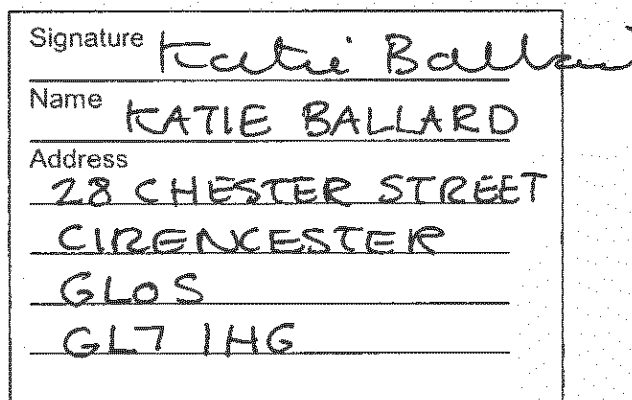 Signature Katie Ballard
Name KATIE BALLARD
Address
28 CHESTER STREET
CIRENCESTER
GLOS
GL7 1HG